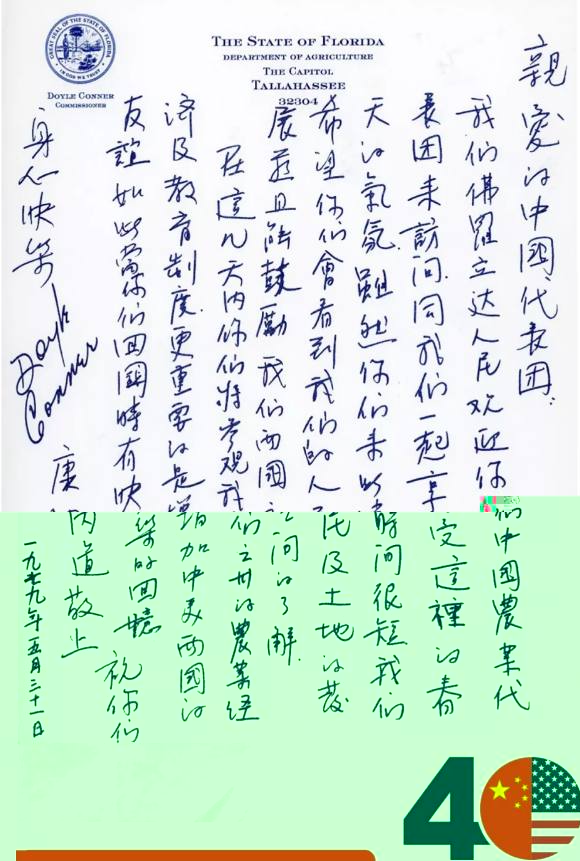 THE STATE OF FLORIDA
DEPARTMENT OF AGRICULTURE
THE CAPITOL
TALLAHASSEE
32304
GREAT SEAL OF THE STATE OF FLORIDA
IN GOD WE TRUST
DOYLE CONNER
COMMISSIONER
親愛的中國代表团:
我们佛羅立达人民欢迎你们中國農業代
表团来訪问同我们一起享受這裡的春
天的氣氛雖然你们来此時间很短我们
希望你们會看到我们的人民及土地的發
展並且能鼓勵我们两國之间的了解.
在這几天内你们将参观我们之州的農業經
済及教育制度.更重要的是增加中美两國的
友誼如此當你们回國時有快樂的回憶 祝你们
身心快樂
Doyle Conner
康内道敬上
一九七九年五月三十一日
40